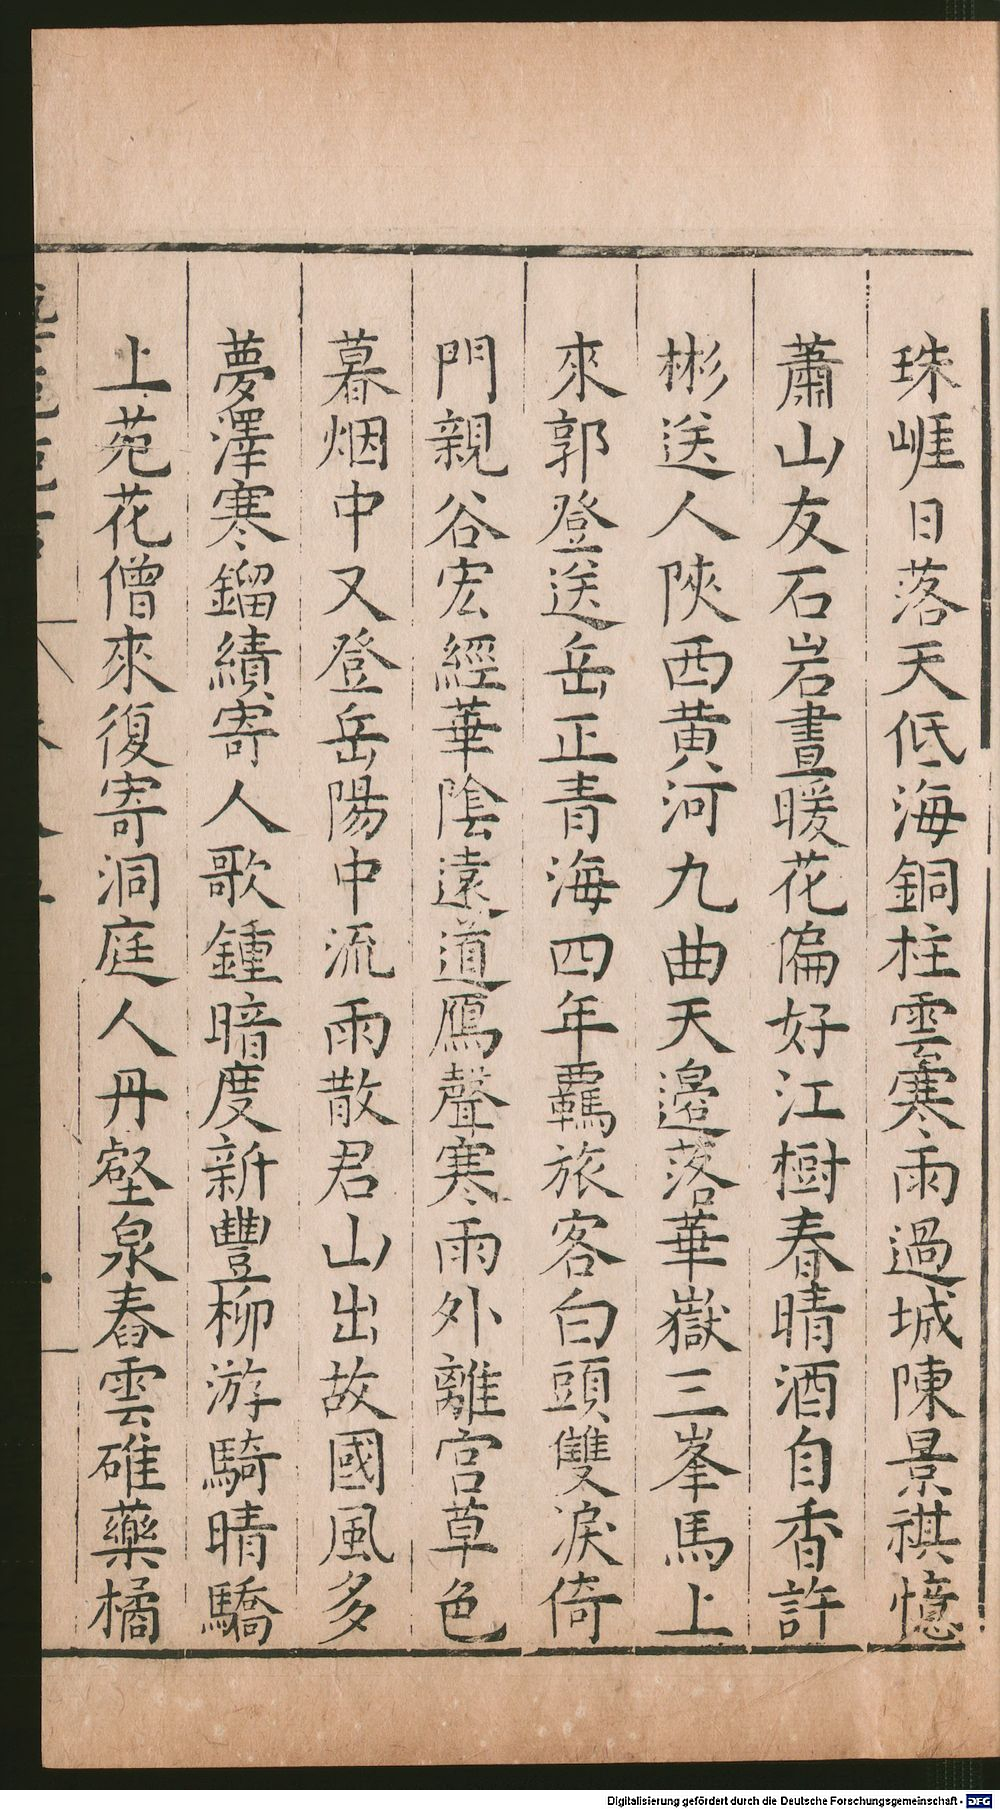 珠崕日落天低海銅柱雲寒雨過城陳景祺憶
蕭山友石岩晝暖花偏好江樹春晴酒自香許
彬送人陝西黃河九曲天邉落華嶽三峯馬上
來郭登送岳正青海四年羈旅客白頭雙淚倚
門親谷宏經華陰遠道鴈聲寒雨外離宮草色
暮烟中又登岳陽中流雨散君山出故國風多
夢澤寒鎦績寄人歌鍾暗度新豐柳游騎晴驕
上苑花僧來復寄洞庭人丹壑泉舂雲碓藥橘
Digitalisierung gefördert durch die Deutsche Forschungsgemeinschaft - DFG